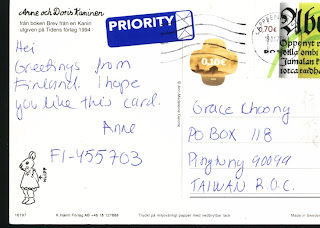 Anne och Doris Kaninen
från boken Brev från en Kanin
utgiven på Tidens förlag 1994
PRIORITY
0,70€
0,10€
Hei
Greetings from
Finland. I hope
you like this card.
Anne
FI-455703
Grace Choong
PO BOX 118
Pingtung 90099
TAIWAN R.O.C.
16197
Made in Sweden